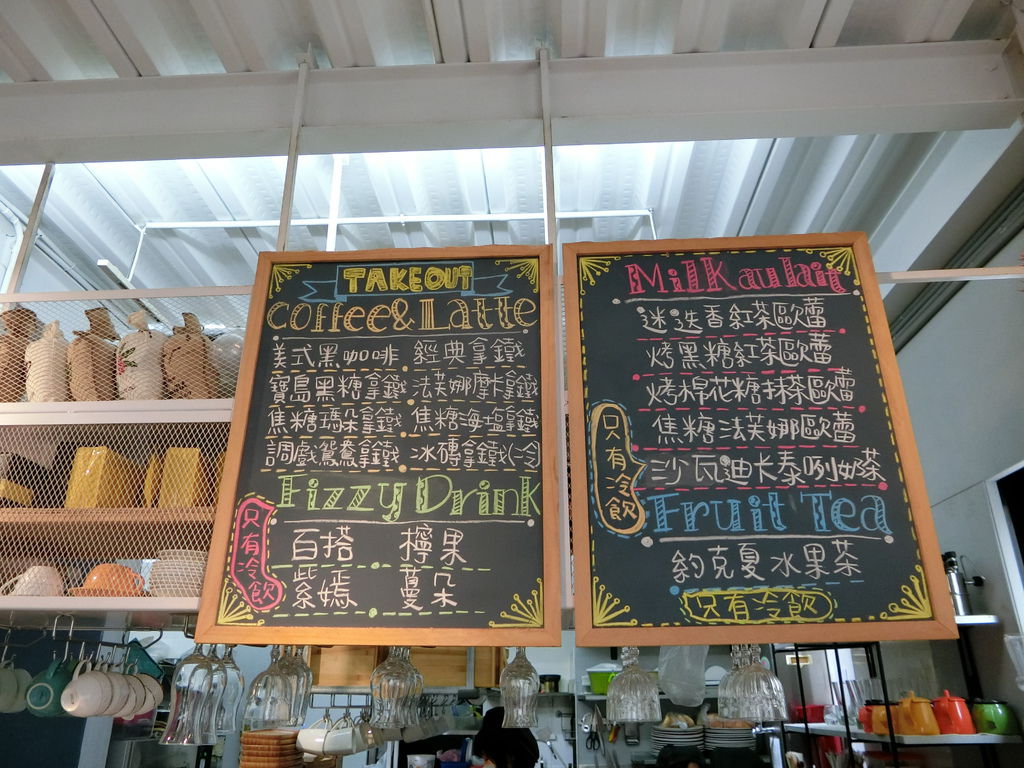 TAKE OUT
Coffee&Latte
美式黑咖啡 經典拿鐵
寶島黑糖拿鐵 法芙娜摩卡拿鐵
焦糖瑪朵拿鐵 焦糖海塩拿鐵
調戲鴛鴦拿鐵 冰磚拿鐵(冷
Fizzy Drink
只有冷飲
百搭 檸果
紫嫣 蔓朵
Milk aulait
迷迭香紅茶歐蕾
烤黑糖紅茶歐蕾
烤棉花糖抹茶歐蕾
焦糖法芙娜歐蕾
三沙瓦迪卡泰咧奶茶
只有冷飲
Fruit Tea
約克夏水果茶
只有冷飲